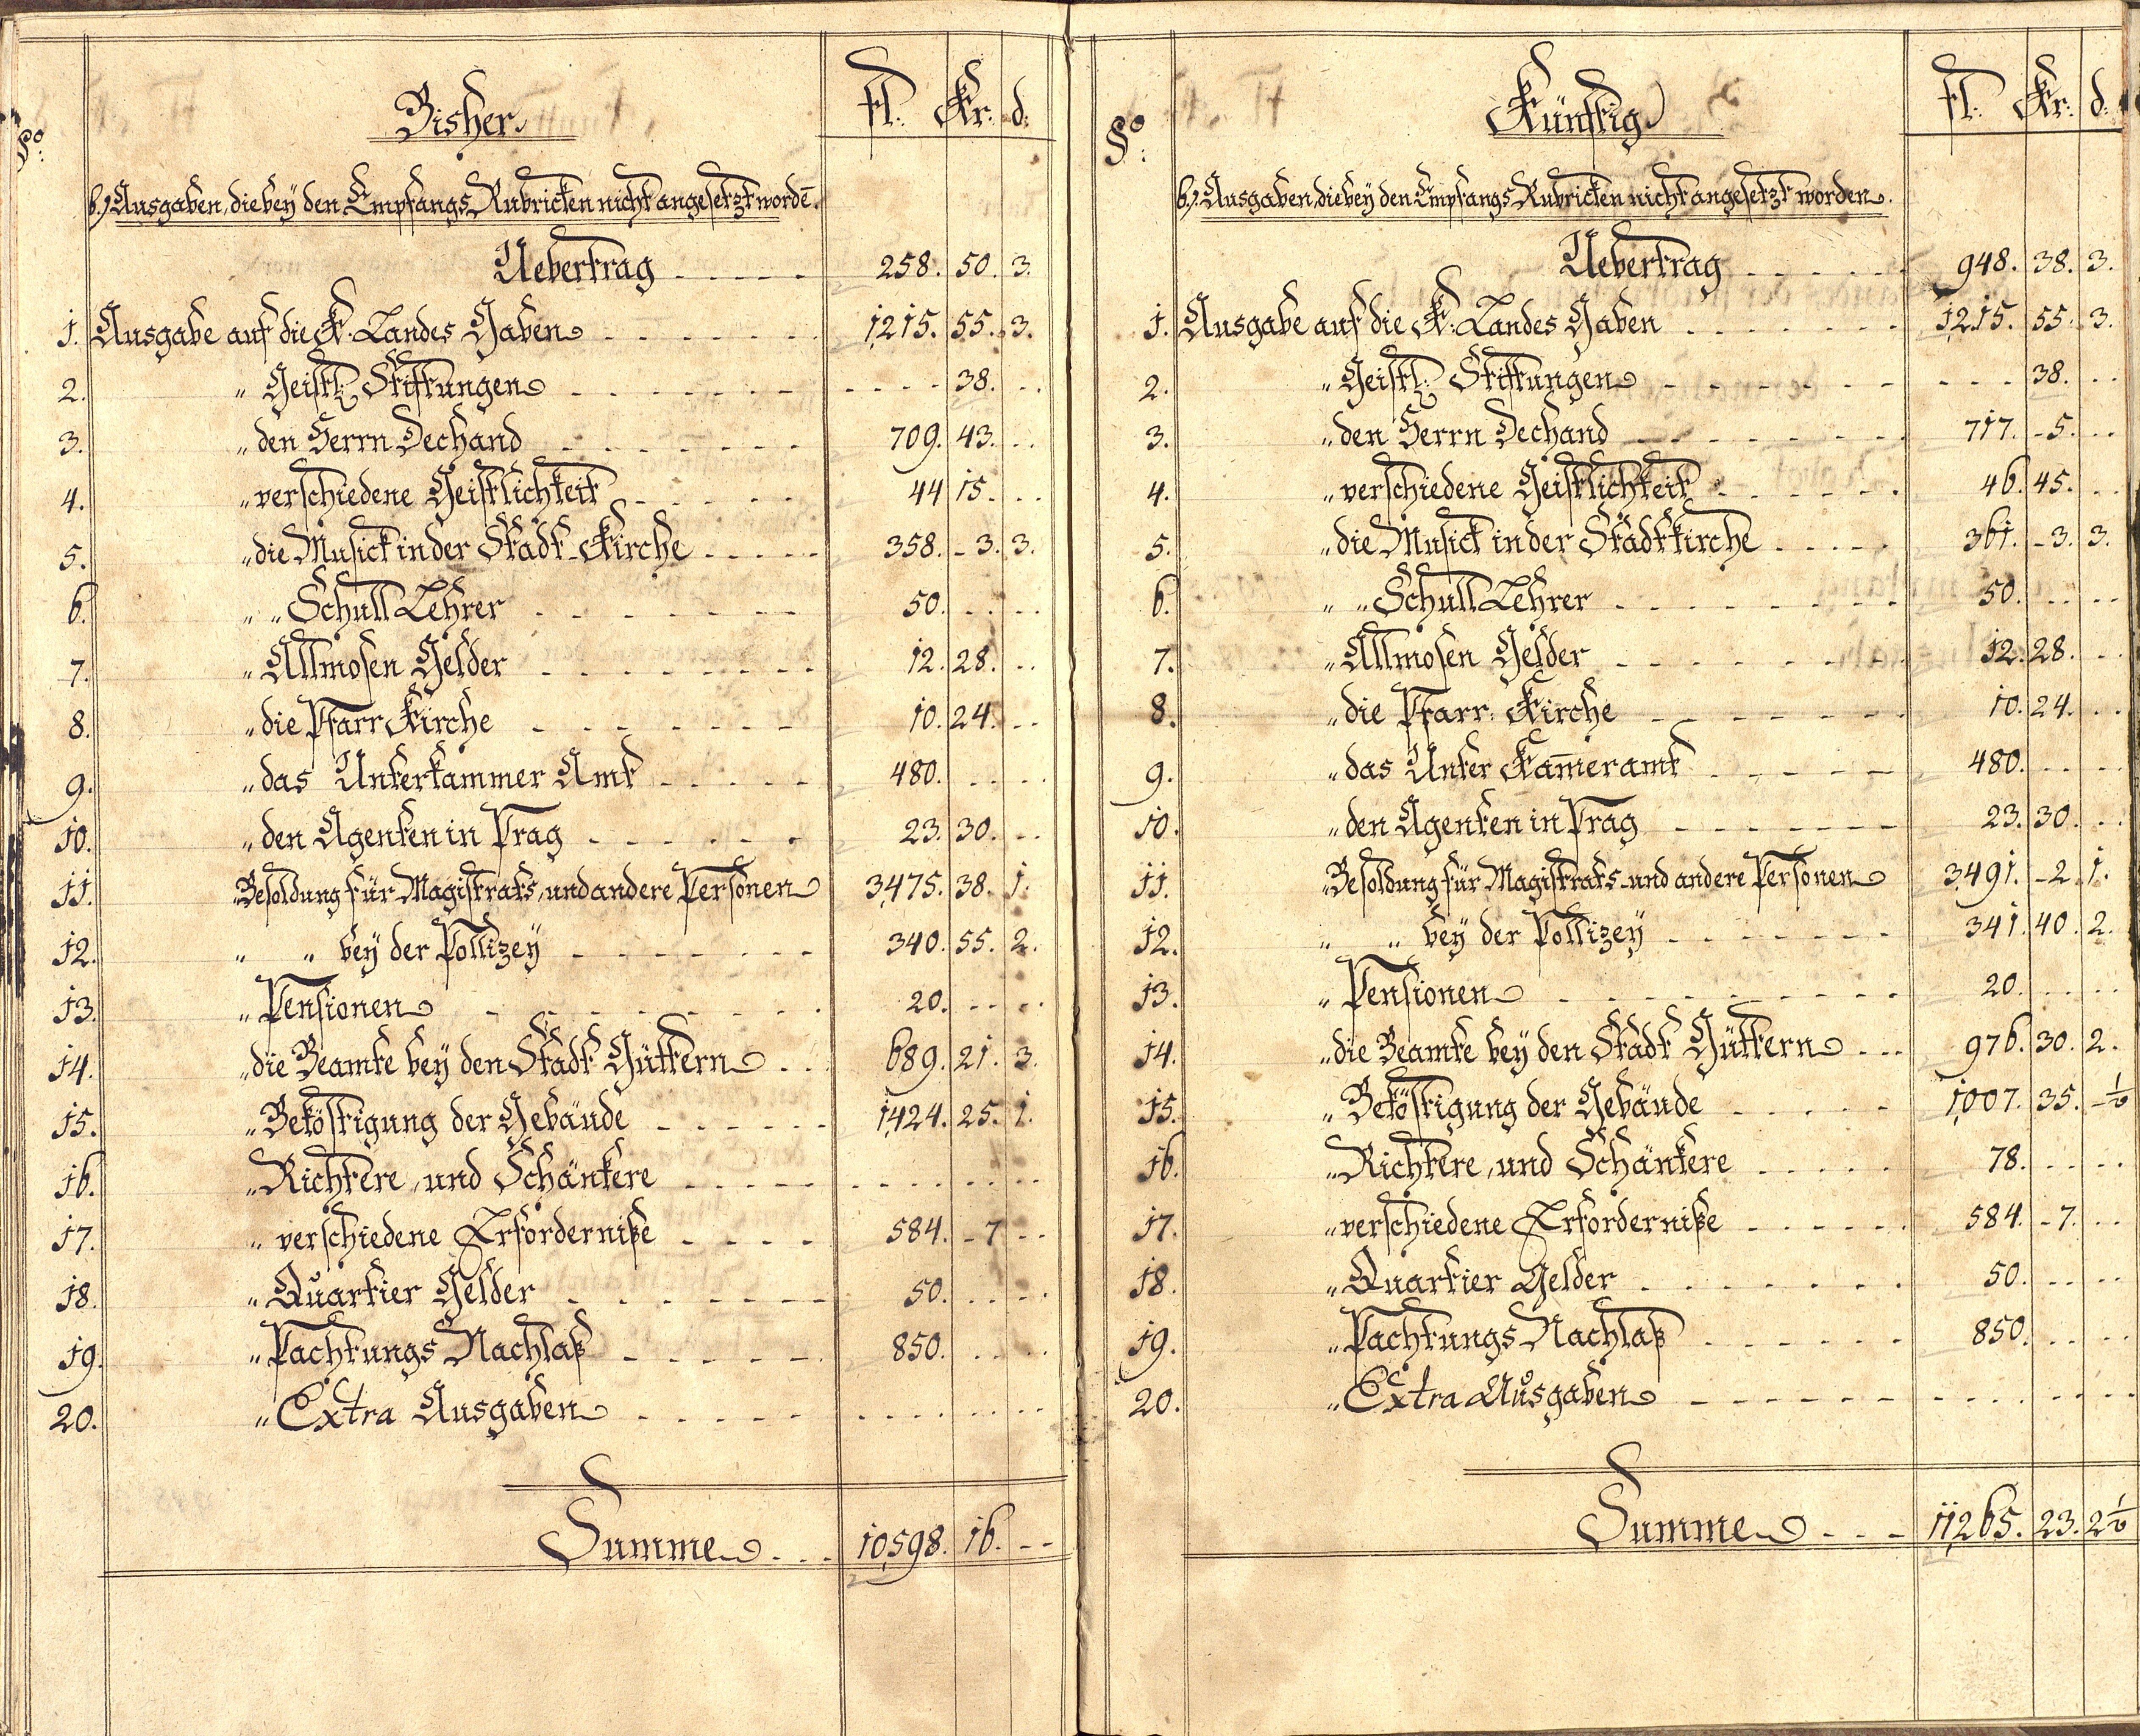 Bisher
fl: Kr: d:
§o:
b.) Ausgaben, die bey den Empfangs Rubricken nicht angesetzt wordē.
Uebertrag - - - - - 258. 50. 3.
1. Ausgabe auf die K. Landes Gaben - - - - - - 1215. 55. 3.
2. " Geistl: Stiftungen - - - - - - - - - - - 38. . .
3. " den Herrn Dechand - - - - - - - 709. 43. . .
4. " verschiedene Geistlichkeit - - - - - 44 15. . .
5. " die Musick in der Stadt-Kirche - - - - - 358. - 3. 3.
6. " " Schull Lehrer - - - - - - - 50. . . . .
7. " Allmosen Gelder - - - - - - - - 12. 28. . .
8. " die Pfarr Kirche - - - - - - - 10. 24. . .
9. " das Unterkammer Amt - - - - - 480. . . . .
10. " den Agenten in Prag - - - - - - 23. 30. . .
11. " Besoldung für Magistrats, und andere Personen 3475. 38. 1.
12. " " bey der Pollizey - - - - - - - 340. 55. 2.
13. " Pensionen - - - - - - - - 20. . . . .
14. " die Beamte bey den Stadt Güttern . . 689. 21. 3.
15. " Beköstigung der Gebäude - - - - - - 1424. 25. 1.
16. " Richtere, und Schänkere - - - - - . . . . . . . .
17. " verschiedene Erforderniße - - - - 584. - 7 - -
18. " Quartier Gelder - - - - - - - 50. . . . .
19. " Pachtungs Nachlaß - - - - - - 850. . . . .
20. " Extra Ausgaben - - - - - . . . . . . . .
Summe - - - 10,598. 16. - -
Künftig
fl: Kr: d:
§o:
b.) Ausgaben, die bey den Empfangs Rubricken nicht angesetzt worden.
Uebertrag - - - - - 948. 38. 3.
1. Ausgabe auf die K: Landes Gaben - - - - - - - 1215. 55. 3.
2. " Geistl: Stiftungen - - - - - - - - - - 38. . .
3. " den Herrn Dechand - - - - - - - - 717. - 5. . .
4. " verschiedene Geistlichkeit - - - - - 46. 45. . .
5. " die Musick in der Stadtkirche - - - - 361. - 3. 3.
6. " " Schull Lehrer - - - - - - - - 50. . . . .
7. " Allmosen Gelder - - - - - - - - 12. 28. . .
8. " die Pfarr: Kirche - - - - - - - 10. 24. . .
9. " das Unter Kam̄eramt - - - - - 480. . . . .
10. " den Agenten in Prag - - - - - - - 23. 30. . .
11. " Besoldung für Magistrats- und andere Personen 3491. - 2. 1.
12. " " bey der Pollizey - - - - - - - 341. 40. 2.
13. " Pensionen - - - - - - - - - 20. . . . .
14. " die Beamte bey den Stadt Güttern . . . 976. 30. 2.
15. " Beköstigung der Gebäude - - - - - 1007. 35. - ½
16. " Richtere, und Schänkere - - - - - 78. . . . .
17. " verschiedene Erforderniße - - - - - - 584. - 7. . .
18. " Quartier Gelder - - - - - - - 50. . . . .
19. " Pachtungs Nachlaß - - - - - - 850. . . . .
20. " Extra Ausgaben - - - - - - - - - - - -
Summe - - - 11,265. 23. 2½